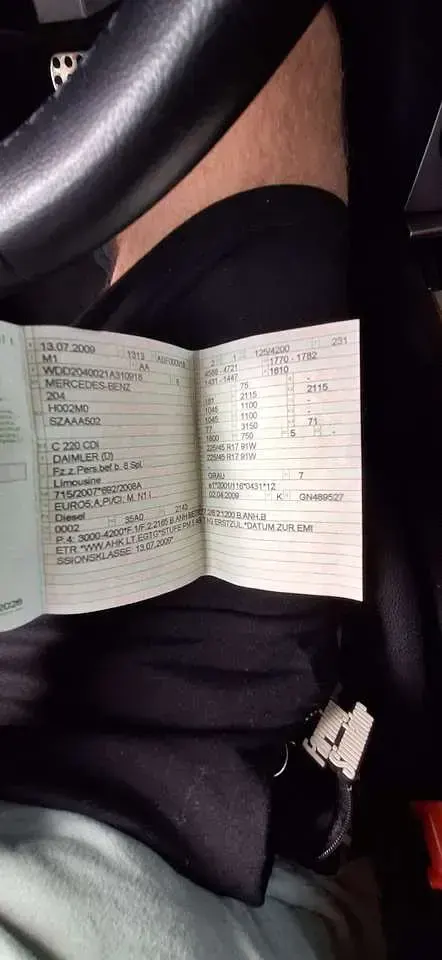 13.07.2009 1313
M1 AA
WDD2040021A310918 6
MERCEDES-BENZ
204
H002M0
SZAAA502
C 220 CDI
DAIMLER (D)
Fz.z.Pers.bef.b. 8 Spl.
Limousine
715/2007*692/2008A
EURO5;A,P I/CI, M, N1 I
Diesel
0002 35A0 2143
P.4: 3000-4200*F.1/F.2:2165 B.ANH
ETR.*WW.AHK LT.EGTG*STUFE PM
SSIONSKLASSE: 13.07.2009*
2 1 125/4200 231
4586 - 4721 1770 - 1782
1431 - 1447 1610
75 -
181 2115 2115
1045 1100 -
1045 1100 -
77 3150 71
1800 750 5 -
225/45 R17 91W
225/45 R17 91W
GRAU 7
e1*2001/116*0431*12
02.04.2009 K GN489527
21200 B.ANH.B
ERSTZUL.*DATUM ZUR EMI
2026